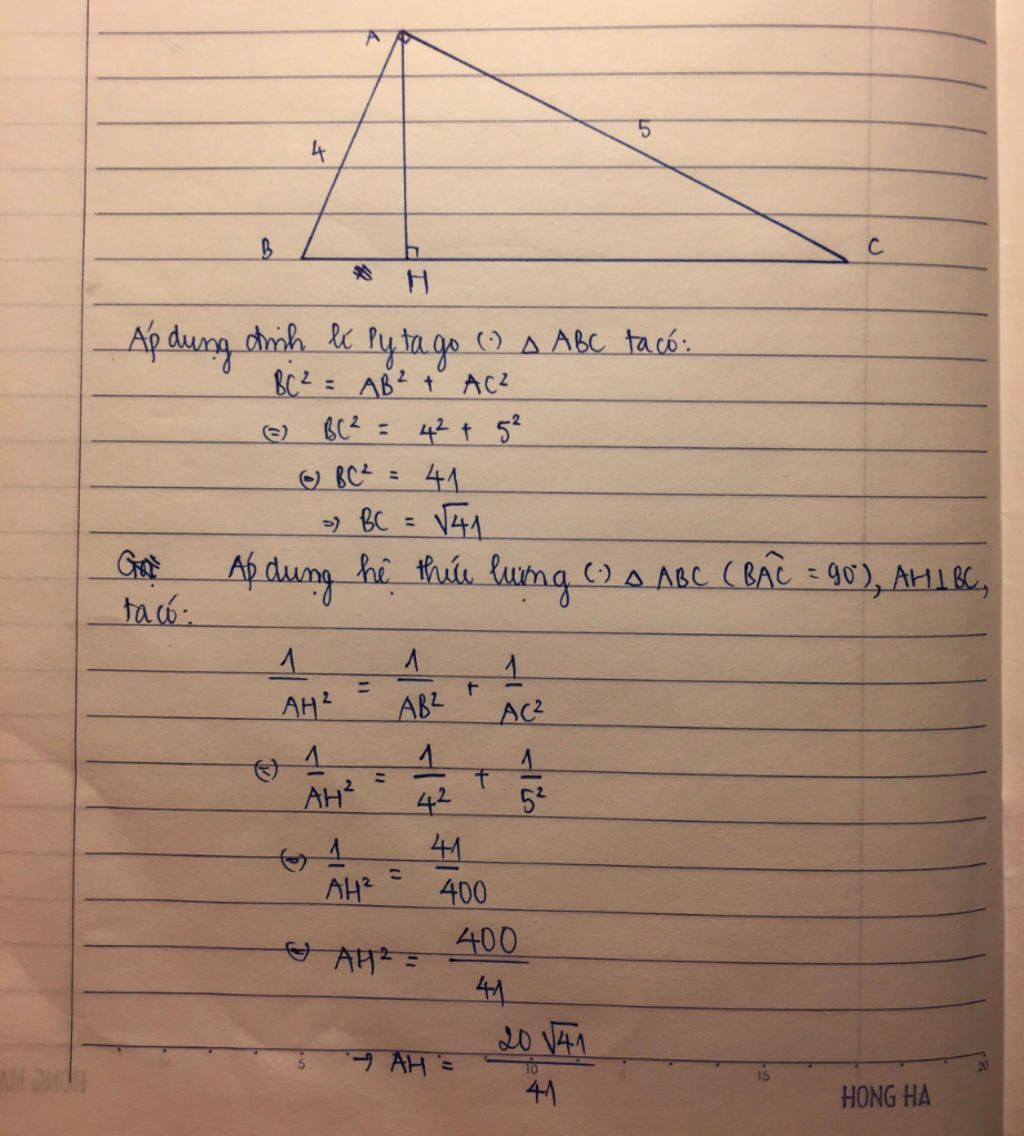 A
4
5
B
H
C
Áp dụng định lí Pytago (·) △ ABC ta có:
BC² = AB² + AC²
(=) BC² = 4² + 5²
(=) BC² = 41
=> BC = √41
Áp dụng hệ thức lượng (·) △ ABC (BÂC = 90°), AH⊥BC,
ta có:
1/AH² = 1/AB² + 1/AC²
(=) 1/AH² = 1/4² + 1/5²
(=) 1/AH² = 41/400
(=) AH² = 400/41
→ AH = 20√41/41
5 10 15 20
HONG HA